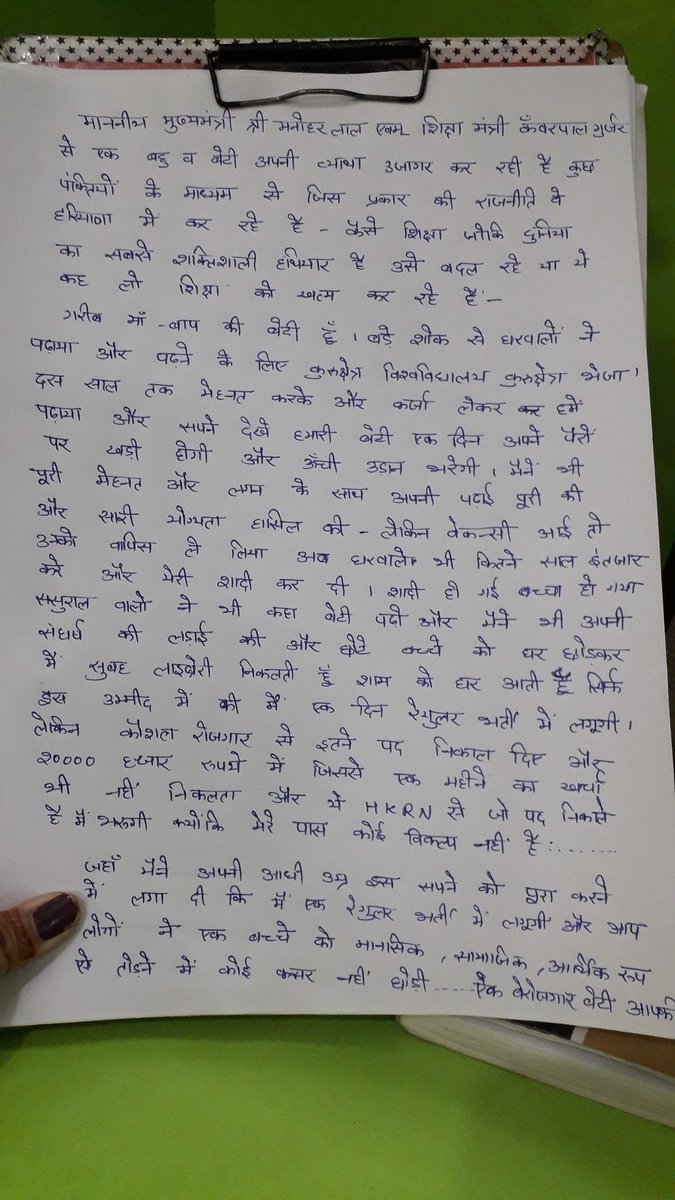 माननीय मुख्यमंत्री श्री मनोहर लाल एवम् शिक्षा मंत्री कँवरपाल गुर्जर
से एक बहु व बेटी अपनी व्याथा उजागर कर रही है कुछ
पंक्तियों के माध्यम से जिस प्रकार की राजनीति वे
हरियाणा में कर रहे है - कैसे शिक्षा जोकि दुनिया
का सबसे शक्तिशाली हथियार है उसे बदल रहे या ये
कह लो शिक्षा को खत्म कर रहे हैं:-
गरीब माँ-बाप की बेटी हूँ। बड़े शोक से घरवालों ने
पढाया और पढने के लिए कुरुक्षेत्र विश्वविद्यालय कुरुक्षेत्र भेजा।
दस साल तक मेहनत करके और कर्जा लेकर हमें
पढ़ाया और सपने देखे हमारी बेटी एक दिन अपने पैरों
पर खड़ी होगी और ऊँची उड़ान भरेगी। मैंने भी
पूरी मेहनत और लगन के साथ अपनी पढाई पूरी की
और सारी योग्यता हासिल की - लेकिन वेकन्सी आई तो
उनको वापिस ले लिया अब घरवाले भी कितने साल इंतजार
करे और मेरी शादी कर दी। शादी हो गई बच्चा हो गया
ससुराल वालो ने भी कहा बेटी पढो और मैंने भी अपनी
संघर्ष की लड़ाई की और छोटे बच्चे को घर छोड़कर
मैं सुबह लाइब्रेरी निकलती हूँ शाम को घर आती हूँ सिर्फ
इस उम्मीद में की मैं एक दिन रेगुलर भर्ती में लगूगी।
लेकिन कौशल रोजगार से इतने पद निकाल दिए और
20000 हजार रुपये में जिससे एक महीने का खर्चा
भी नहीं निकलता और ये HKRN से जो पद निकले
है मैं भरुगी क्योंकि मेरे पास कोई विकल्प नहीं है:.......
जहाँ मैंने अपनी आधी उम्र इस सपने को पूरा करने
में लगा दी कि मैं एक रेगुलर भर्ती में लगूगीं और आप
लोगों ने एक बच्चे को मानसिक, सामाजिक, आर्थिक रूप
से तोड़ने में कोई कसर नहीं छोड़ी..... ऐक बेरोजगार बेटी आपकी